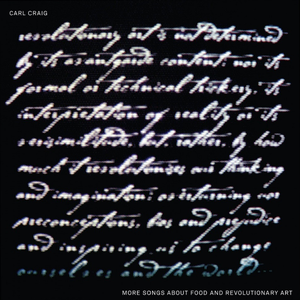 CARL CRAIG
revolutionary art is not determined
by its avantgarde content, nor its
formal or technical trickery, its
interpretation of reality or its
verisimilitude, but, rather, by how
much it revolutionizes our thinking
and imagination; overturning our
preconceptions, bias and prejudice
and inspiring us to change
ourselves and the world...
MORE SONGS ABOUT FOOD AND REVOLUTIONARY ART